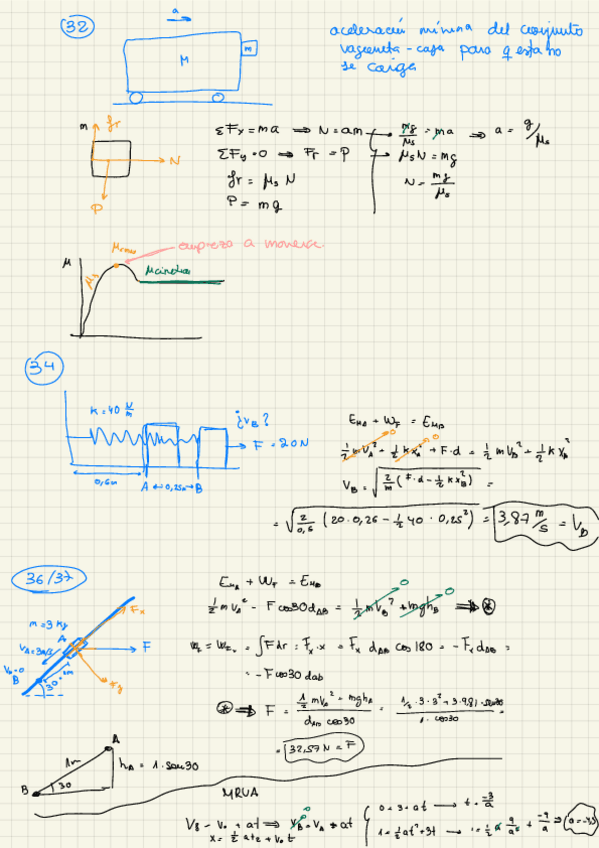 32
a
M
m
aceleración mínima del conjunto
vagoneta - caja para q esta no
se caiga
m fr
N
P
ΣFx = ma ⇒ N = am
ΣFy = 0 ⇒ Fr = P
fr = μs N
P = mg
mg/μs = ma ⇒ a = g/μs
μsN = mg
N = mg/μs
empieza a moverse
μ
μs
34
K = 40 N/m
¿VB?
F = 20N
0,6m A 0,25m B
EMA + WF = EMB
1/2 m VA² + 1/2 K xA² + F·d = 1/2 m VB² + 1/2 K xB²
0 0
VB = √(2/m (F·d - 1/2 K xB²)) =
= √(2/0,5 (20·0,25 - 1/2 40·0,25²)) = 3,87 m/s = VB
36/37
m = 3 kg
VA = 3m/s
VB = 0
A
B
1m
30°
Fx
F
Fy
EMA + WF = EMB
1/2 m VA² - F cos30 dAB = 1/2 m VB² + mghB ⇒ *
0 0
= ∫ F dr = Fx · x = Fx dAB cos 180 = - Fx dAB =
= - F cos30 dab
* ⇒ F = (1/2 m VA² + mghA)/(dAB cos30) = (1/2 · 3 · 3² + 3 · 9,81 · sen30)/(1 · cos30) =
= 32,57 N = F
A
1m
hA = 1 · sen30
B 30
MRUA
VB = V0 + at ⇒ VB = VA + at
0
x = 1/2 at² + V0 t
0 = 3 + at → t = -3/a
1 = 1/2 at² + 3t → 1 = 1/2 a 9/a² + -9/a ⇒ a = -4,5